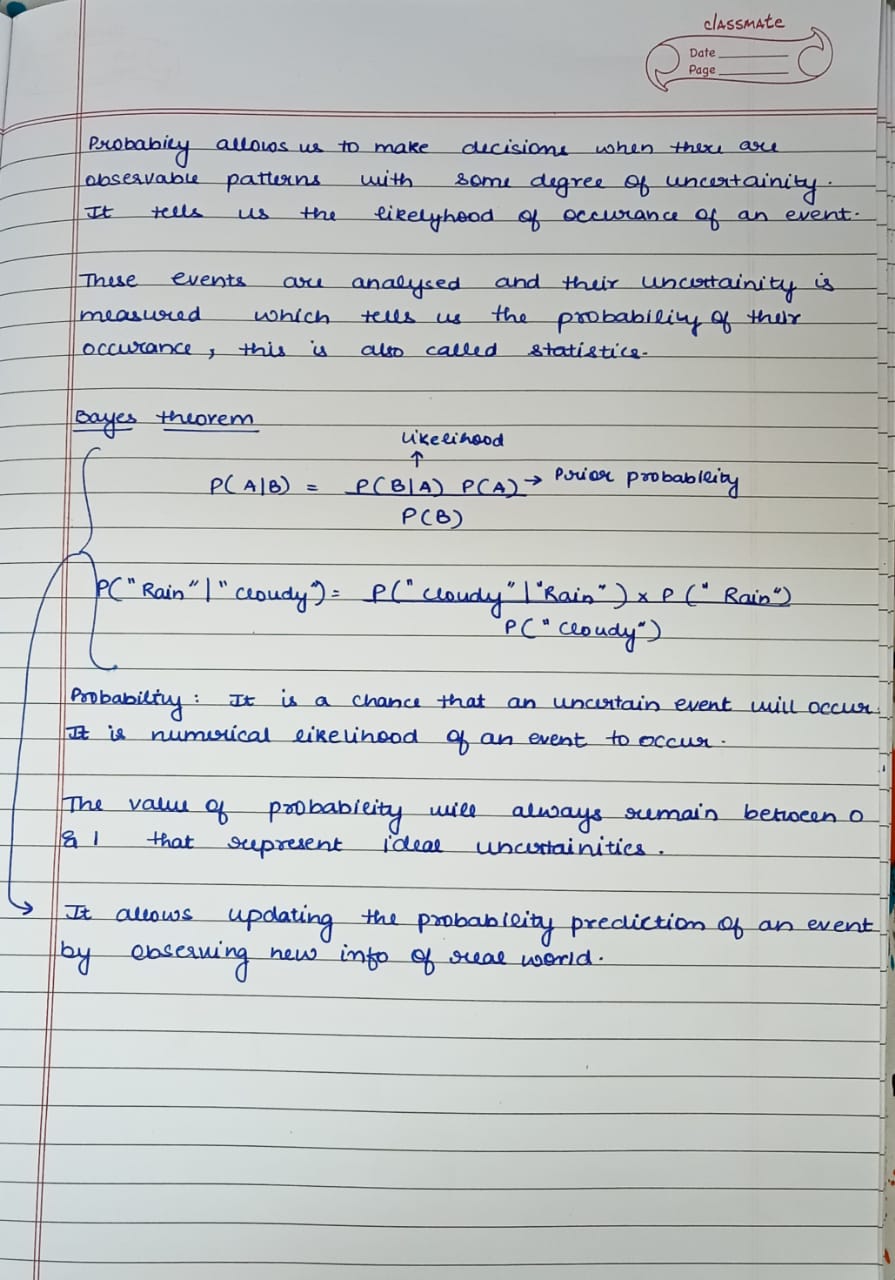 classmate
Date
Page
Probabiliy allows us to make decisions when there are
observable patterns with some degree of uncertainity.
It tells us the likelyhood of occurance of an event.
These events are analysed and their uncertainity is
measured which tells us the probability of their
occurance, this is also called statistics.
Bayes theorem
Likelihood
↑
P(A|B) = P(B|A) P(A) → Prior probability
P(B)
P("Rain"|"cloudy") = P("cloudy"|"Rain") x P("Rain")
P("cloudy")
Probability: It is a chance that an uncertain event will occur.
It is numerical likelihood of an event to occur.
The value of probability will always remain between 0
& 1 that represent ideal uncertainities.
It allows updating the probability prediction of an event
by observing new info of real world.